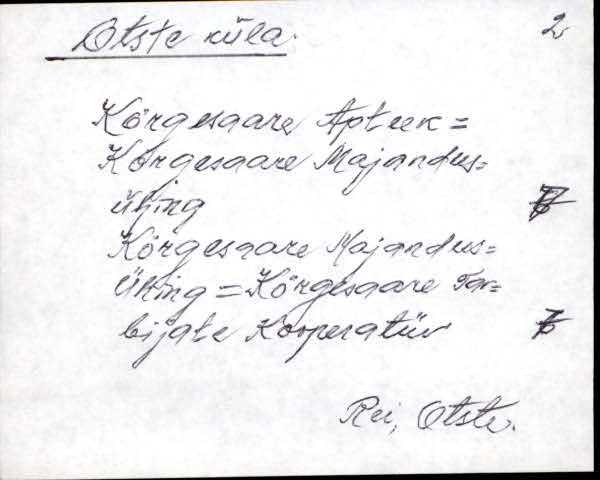 Otste küla. 2
Kõrgesaare Apteek =
Kõrgesaare Majandus-
ühing
Kõrgesaare Majandus=
ühing = Kõrgesaare Tar=
bijate Kooperatiiv
Rei, Otste.